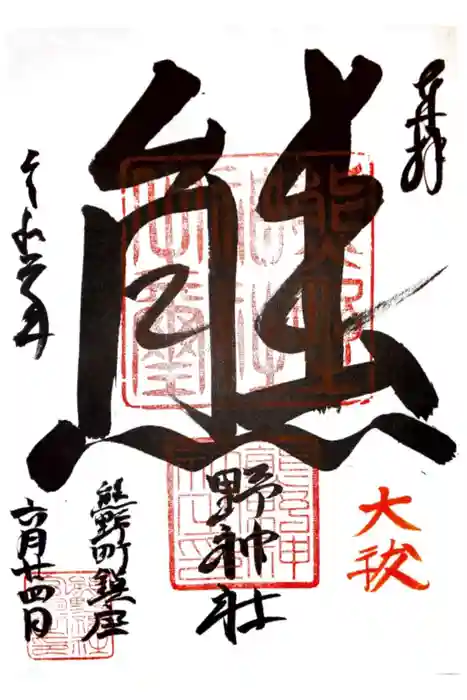 奉拝
大祓
熊
野神社
熊野町鎮座
令和元年
六月廿四日